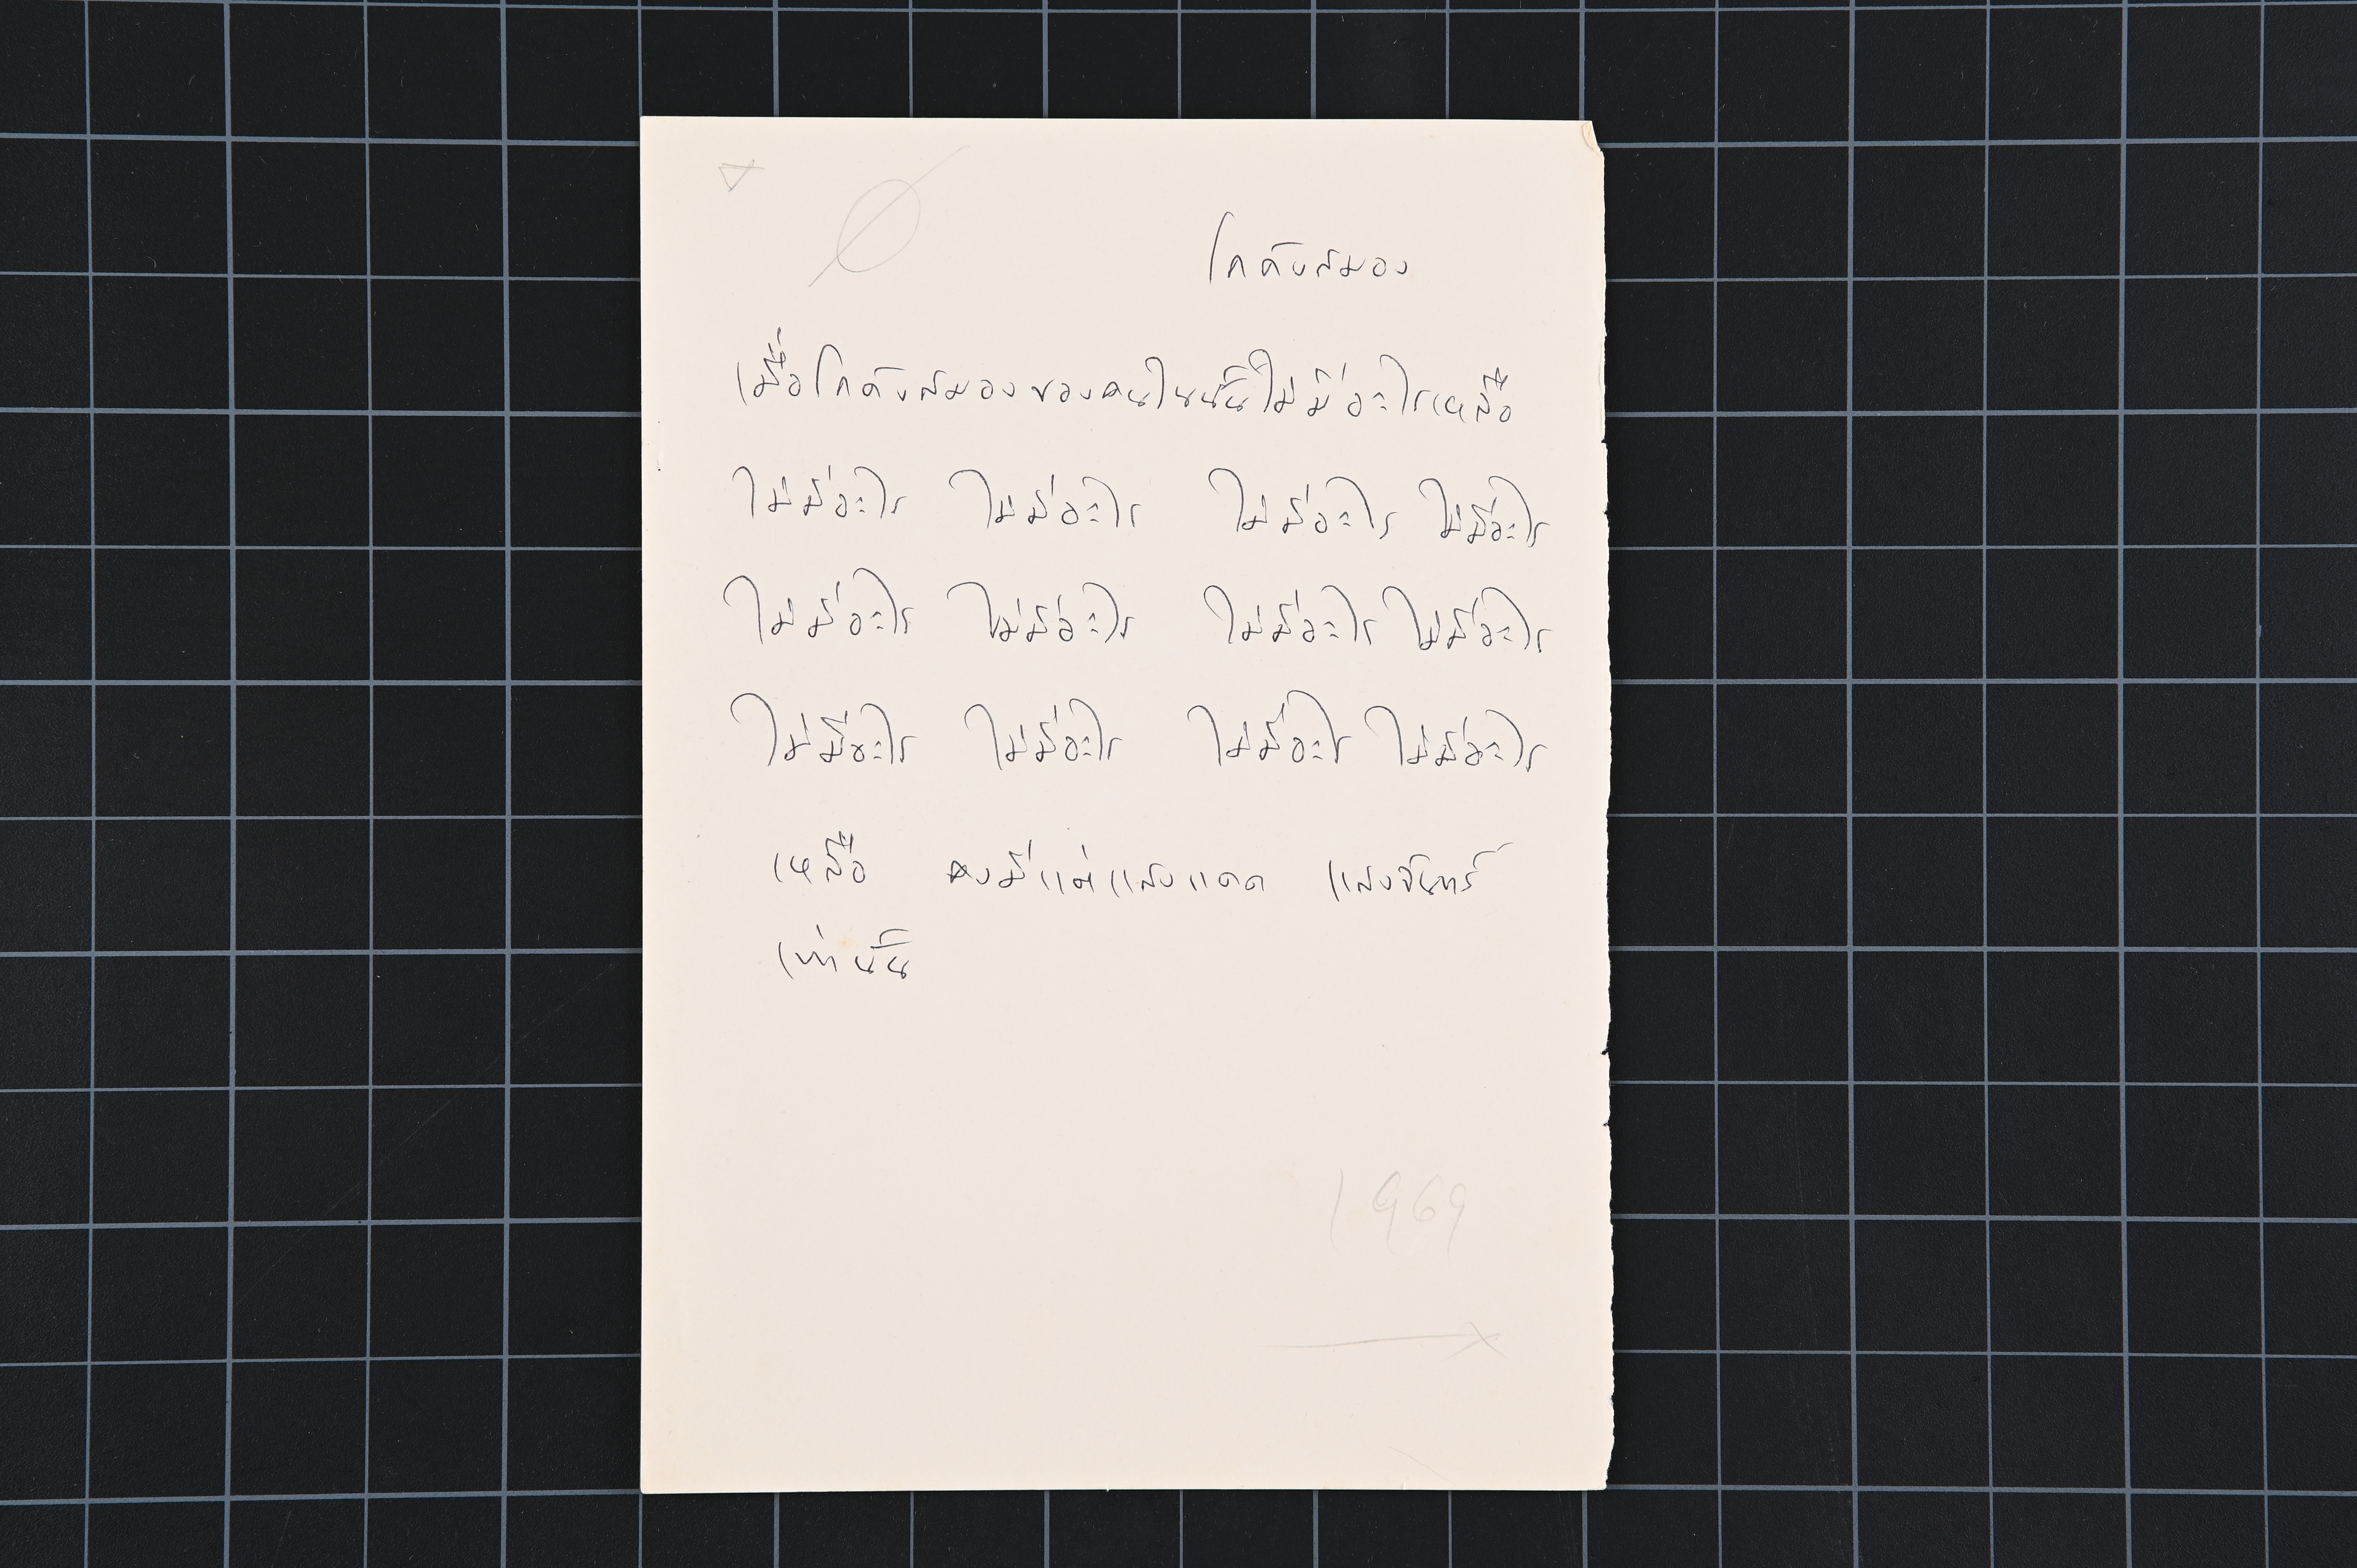 โกดังสมอง
เมื่อโกดังสมองของคนในนั้นไม่มีอะไรเหลือ
ไม่มีอะไร ไม่มีอะไร ไม่มีอะไร ไม่มีอะไร
ไม่มีอะไร ไม่มีอะไร ไม่มีอะไร ไม่มีอะไร
ไม่มีอะไร ไม่มีอะไร ไม่มีอะไร ไม่มีอะไร
เหลือ คงมีแต่แสงแดด แสงจันทร์
เท่านั้น
1969